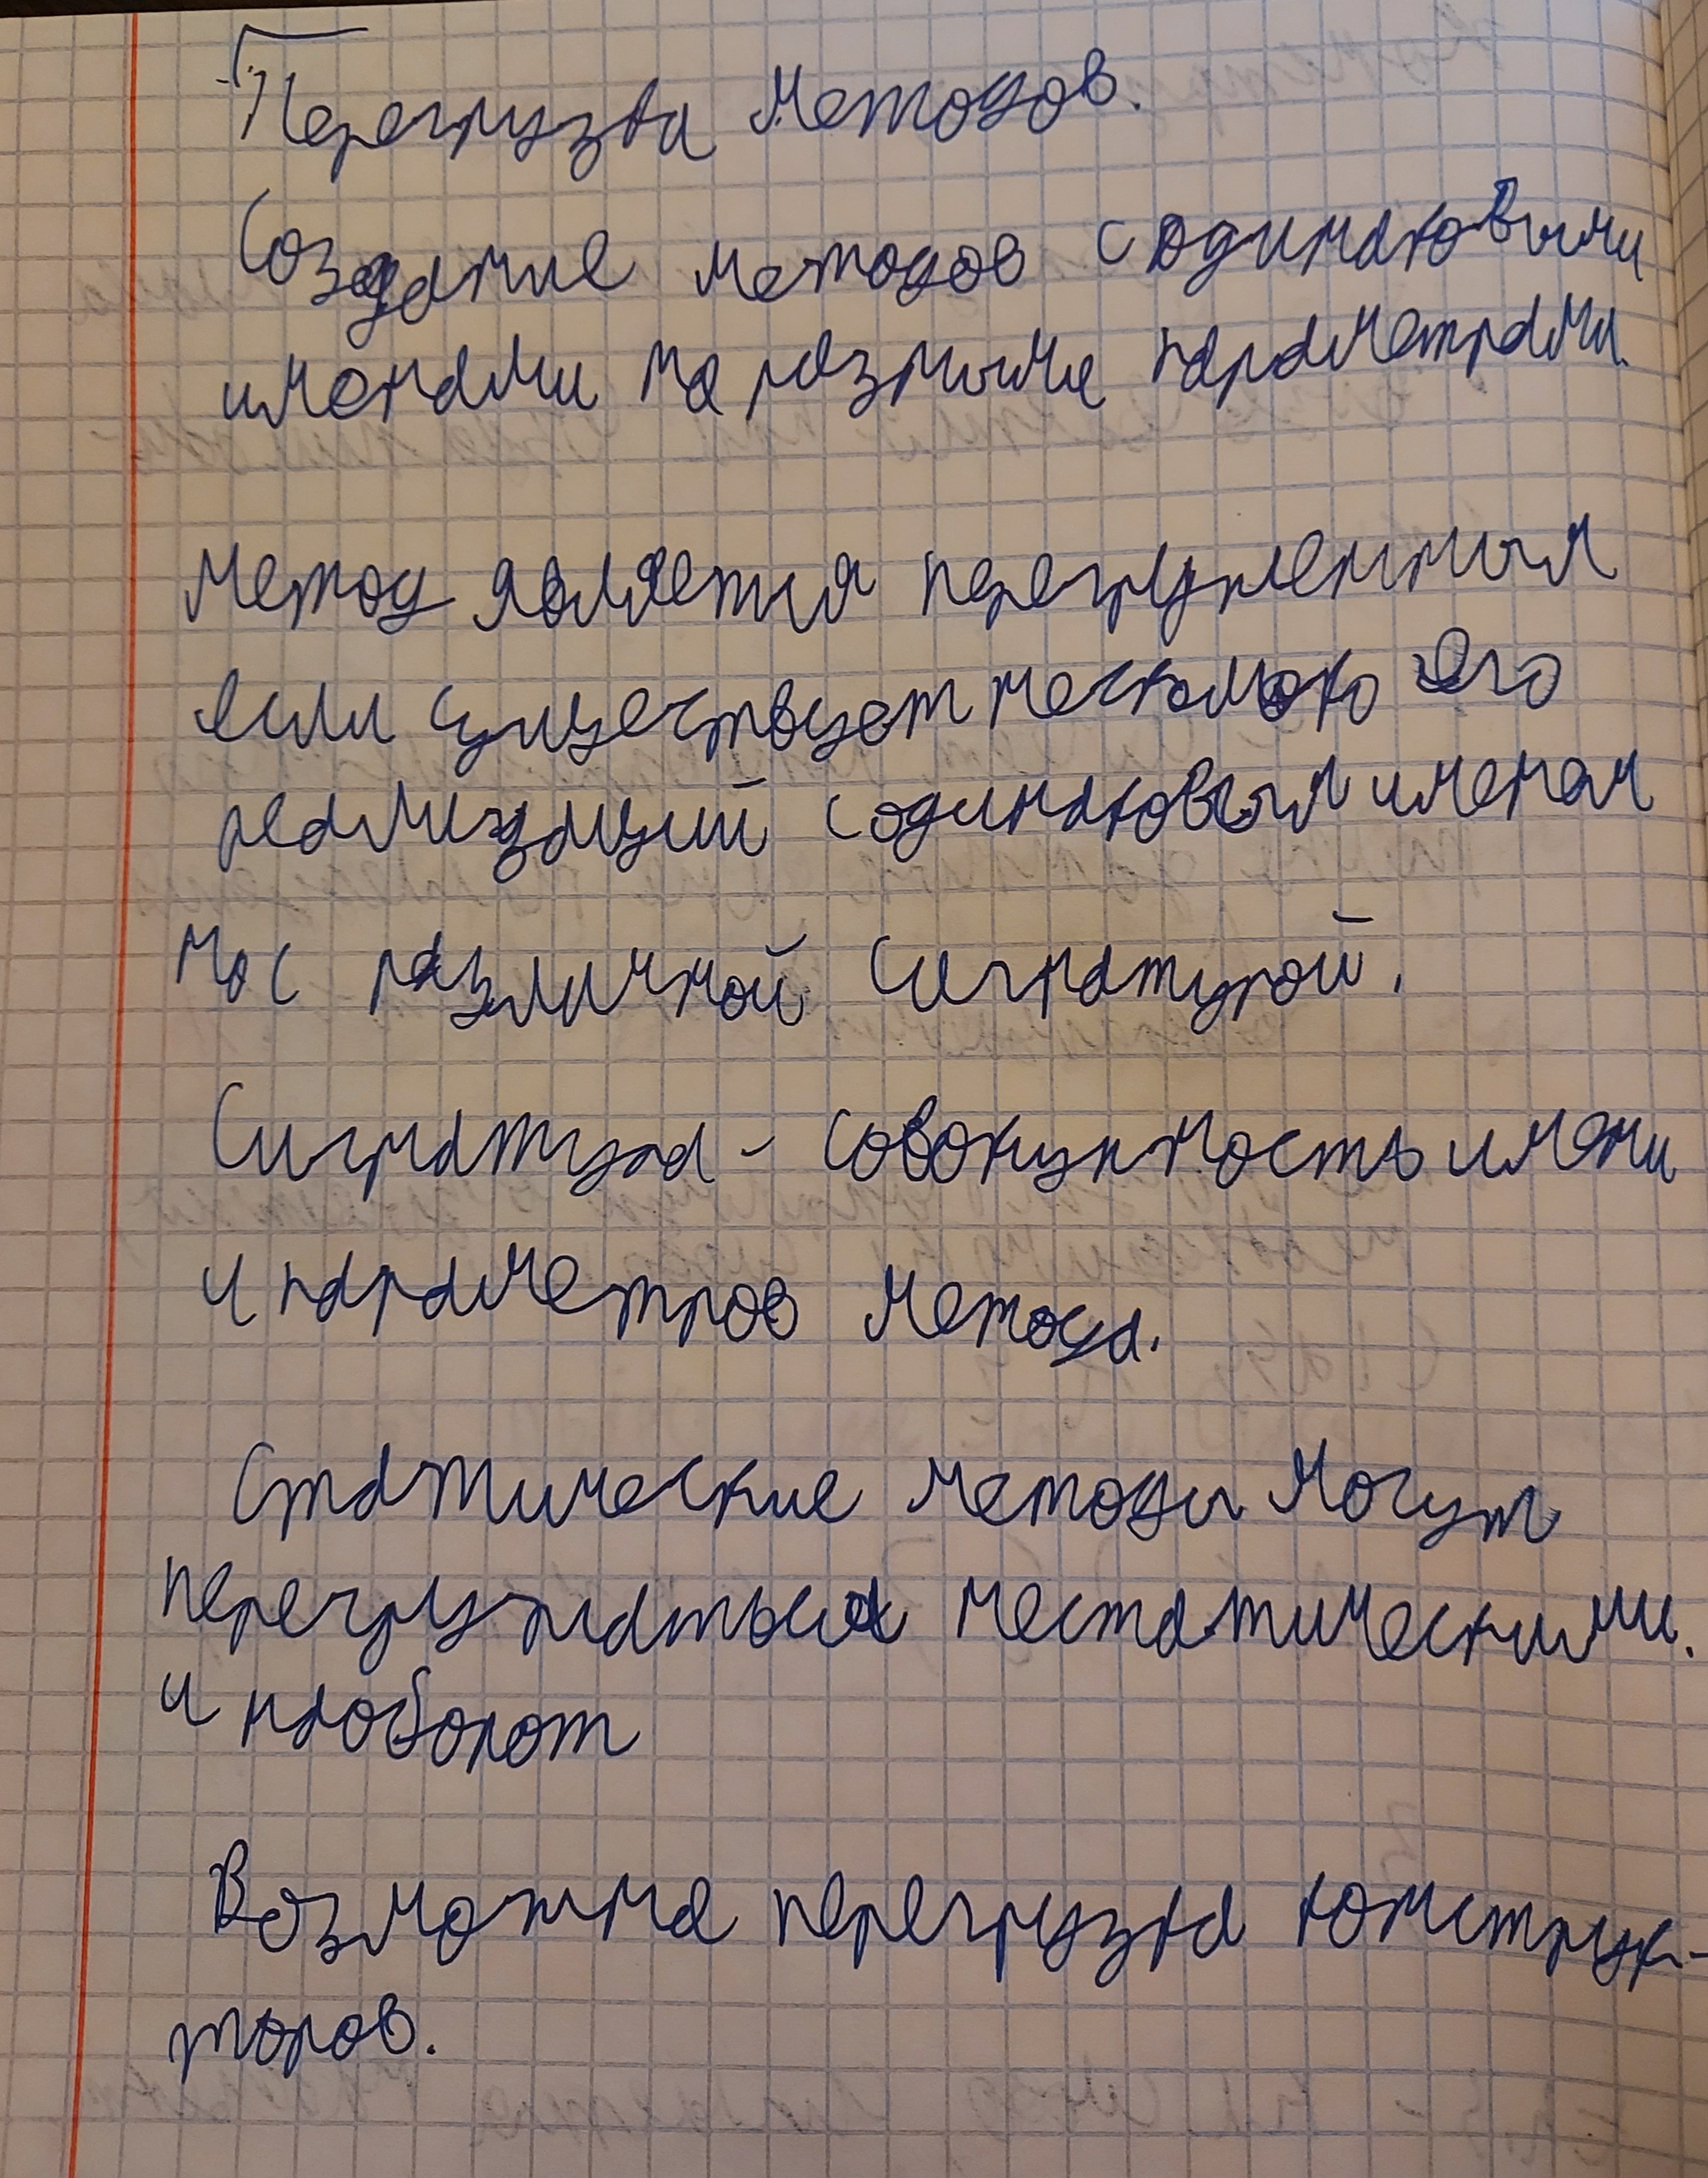 Перегрузка методов.
Создание методов с одинаковыми
именами но разными параметрами.
Метод является перегруженным
если существует несколько его
реализаций с одинаковым именем
но с различной сигнатурой.
Сигнатура - совокупность имени
и параметров метода.
Статические методы могут
перегружаться нестатическими.
и наоборот
Возможна перегрузка конструк-
торов.